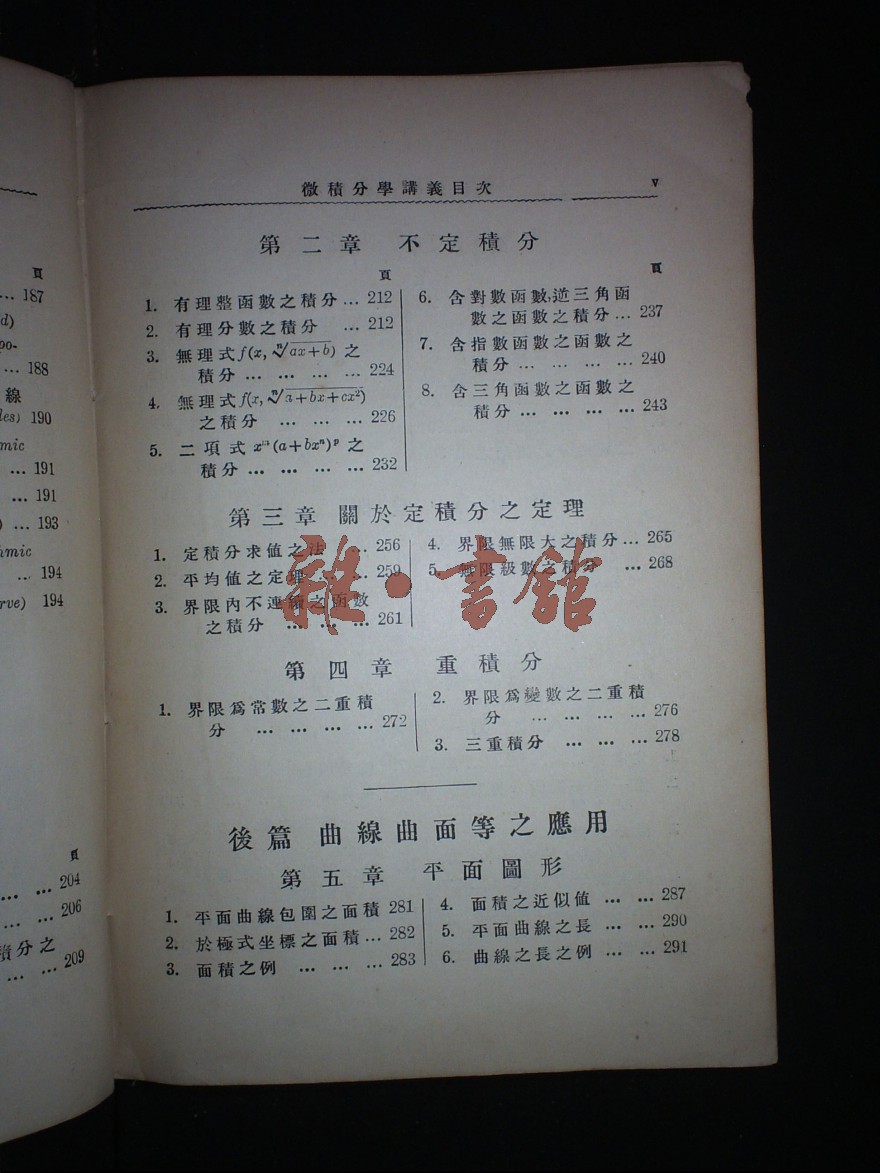 頁
... 187
d)
po-
... 188
線
les) 190
mic
... 191
... 191
) ... 193
hmic
... 194
rve) 194
頁
... ... 204
... ... 206
積分之
... ... 209
微積分學講義目次 v
第二章 不定積分
頁
1. 有理整函數之積分 ... 212
2. 有理分數之積分 ... 212
3. 無理式 f(x, ⁿ√ax+b) 之
積分 ... ... ... ... 224
4. 無理式 f(x, ⁿ√a+bx+cx²)
之積分 ... ... ... 226
5. 二項式 xᵐ(a+bxⁿ)ᵖ 之
積分 ... ... ... ... 232
頁
6. 含對數函數,逆三角函
數之函數之積分 ... 237
7. 含指數函數之函數之
積分 ... ... ... ... 240
8. 含三角函數之函數之
積分 ... ... ... ... 243
第三章 關於定積分之定理
1. 定積分求值之法 ... 256
2. 平均值之定理 ... ... 259
3. 界限內不連續之函數
之積分 ... ... ... 261
4. 界限無限大之積分 ... 265
5. 無限級數之積分 ... 268
雜·書館
第四章 重積分
1. 界限爲常數之二重積
分 ... ... ... ... 272
2. 界限爲變數之二重積
分 ... ... ... ... 276
3. 三重積分 ... ... ... 278
後篇 曲線曲面等之應用
第五章 平面圖形
1. 平面曲線包圍之面積 281
2. 於極式坐標之面積 ... 282
3. 面積之例 ... ... ... 283
4. 面積之近似値 ... ... 287
5. 平面曲線之長 ... ... 290
6. 曲線之長之例 ... ... 291